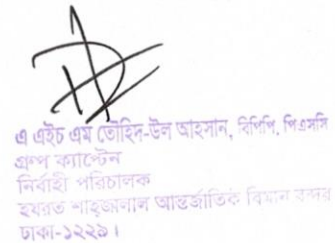 এ এইচ এম তৌহিদ-উল আহসান, বিপিপি, পিএসসি
গ্রুপ ক্যাপ্টেন
নির্বাহী পরিচালক
হযরত শাহ্জালাল আন্তর্জাতিক বিমান বন্দর
ঢাকা-১২২৯।